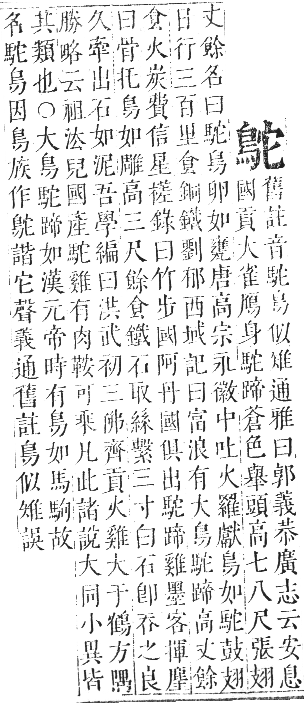 鴕
舊註音駝鳥似雉通雅曰郭義恭廣志云安息
國貢大雀鴈身駝蹄蒼色舉頭高七八尺張翅
丈餘名曰駝鳥卵如甕唐高宗永徽中吐火羅獻鳥如駝鼓翅
日行三百里食銅鐵劉郁西域記曰富浪有大鳥駝蹄高丈餘
食火炭費信星槎錄曰竹步國阿丹國俱出駝蹄雞墨客揮塵
曰骨托鳥如雕高三尺餘食鐵石取絲繫三寸白石卽吞之良
久牽出石如泥吾學編曰洪武初三佛齊貢火雞大于鶴方隅
勝略云祖法兒國產駝雞有肉鞍可乘凡此諸說大同小異皆
其類也○大鳥駝蹄如漢元帝時有鳥如馬駒故
名駝鳥因鳥族作鴕諧它聲義通舊註鳥似雉誤